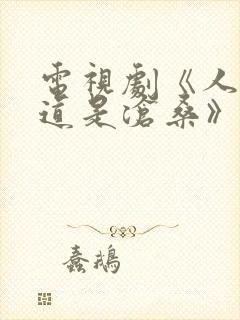 電視劇《人
道是滄桑》
蠢鵝